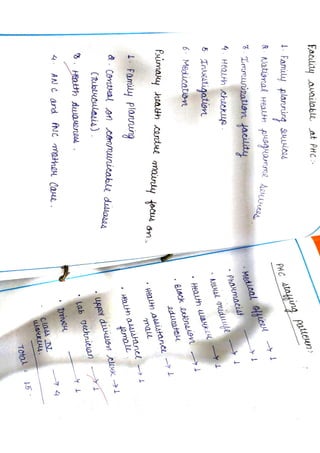 Facility available at PHC:-
1. Family planning services
2. National health programme services
3 Immunization facility
4. Health checkup.
5 Investigation
6. Medication
Primary health centre mainly focus on.
1. Family planning
2. Control on communicable diseases
(Tuberculosis).
3. Health awareness.
4. ANC and PNC mother care.
PHC staffing pattern:
• Medical officer → 1
• Pharmacist → 1
• Nurse midwife → 1
• Health worker → 1
• Block extension
educator → 1
• Health assistance → 1
male
• Health assistance → 1
female
• Upper division clerk → 1
• Lab technician → 1
• Driver → 1
• Class IV → 4
workers.
Total 15.